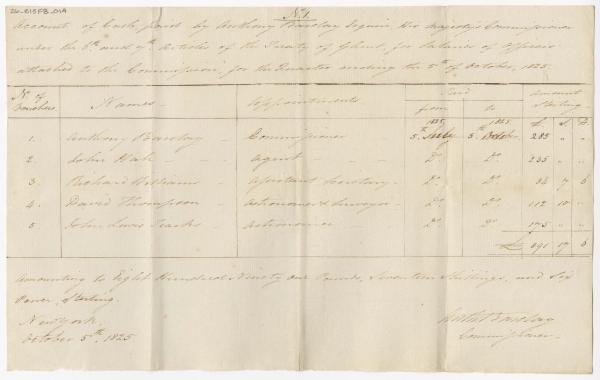 26-S15FB_019
No. 1.
Account of Cash, paid by Anthony Barclay Esquire, His Majesty's Commissioner
under the 6th and 7th Articles of the Treaty of Ghent, for Salaries of Officers
attached to the Commission, for the Quarter ending the 5th of October, 1825.
No. of Vouchers Names Appointments Paid from to Amount Sterling
1825 1825 £ S D
1. Anthony Barclay Commissioner 5th July 5th October 285 " "
2. John Hale - - agent - - - Do. Do. 235 " "
3 Richard Williams - assistant Secretary - Do. Do. 84 7 6
4. David Thompson - astronomer & Surveyor - Do. Do. 112 10 "
5 John Lewis - astronomer - Do. Do. 175 " "
£ 891 17 6
Amounting to Eight Hundred Ninety One Pounds, Seventeen Shillings, and Six
Pence, Sterling.
New York,
October 5th, 1825.
Anth. Barclay
Commissioner.